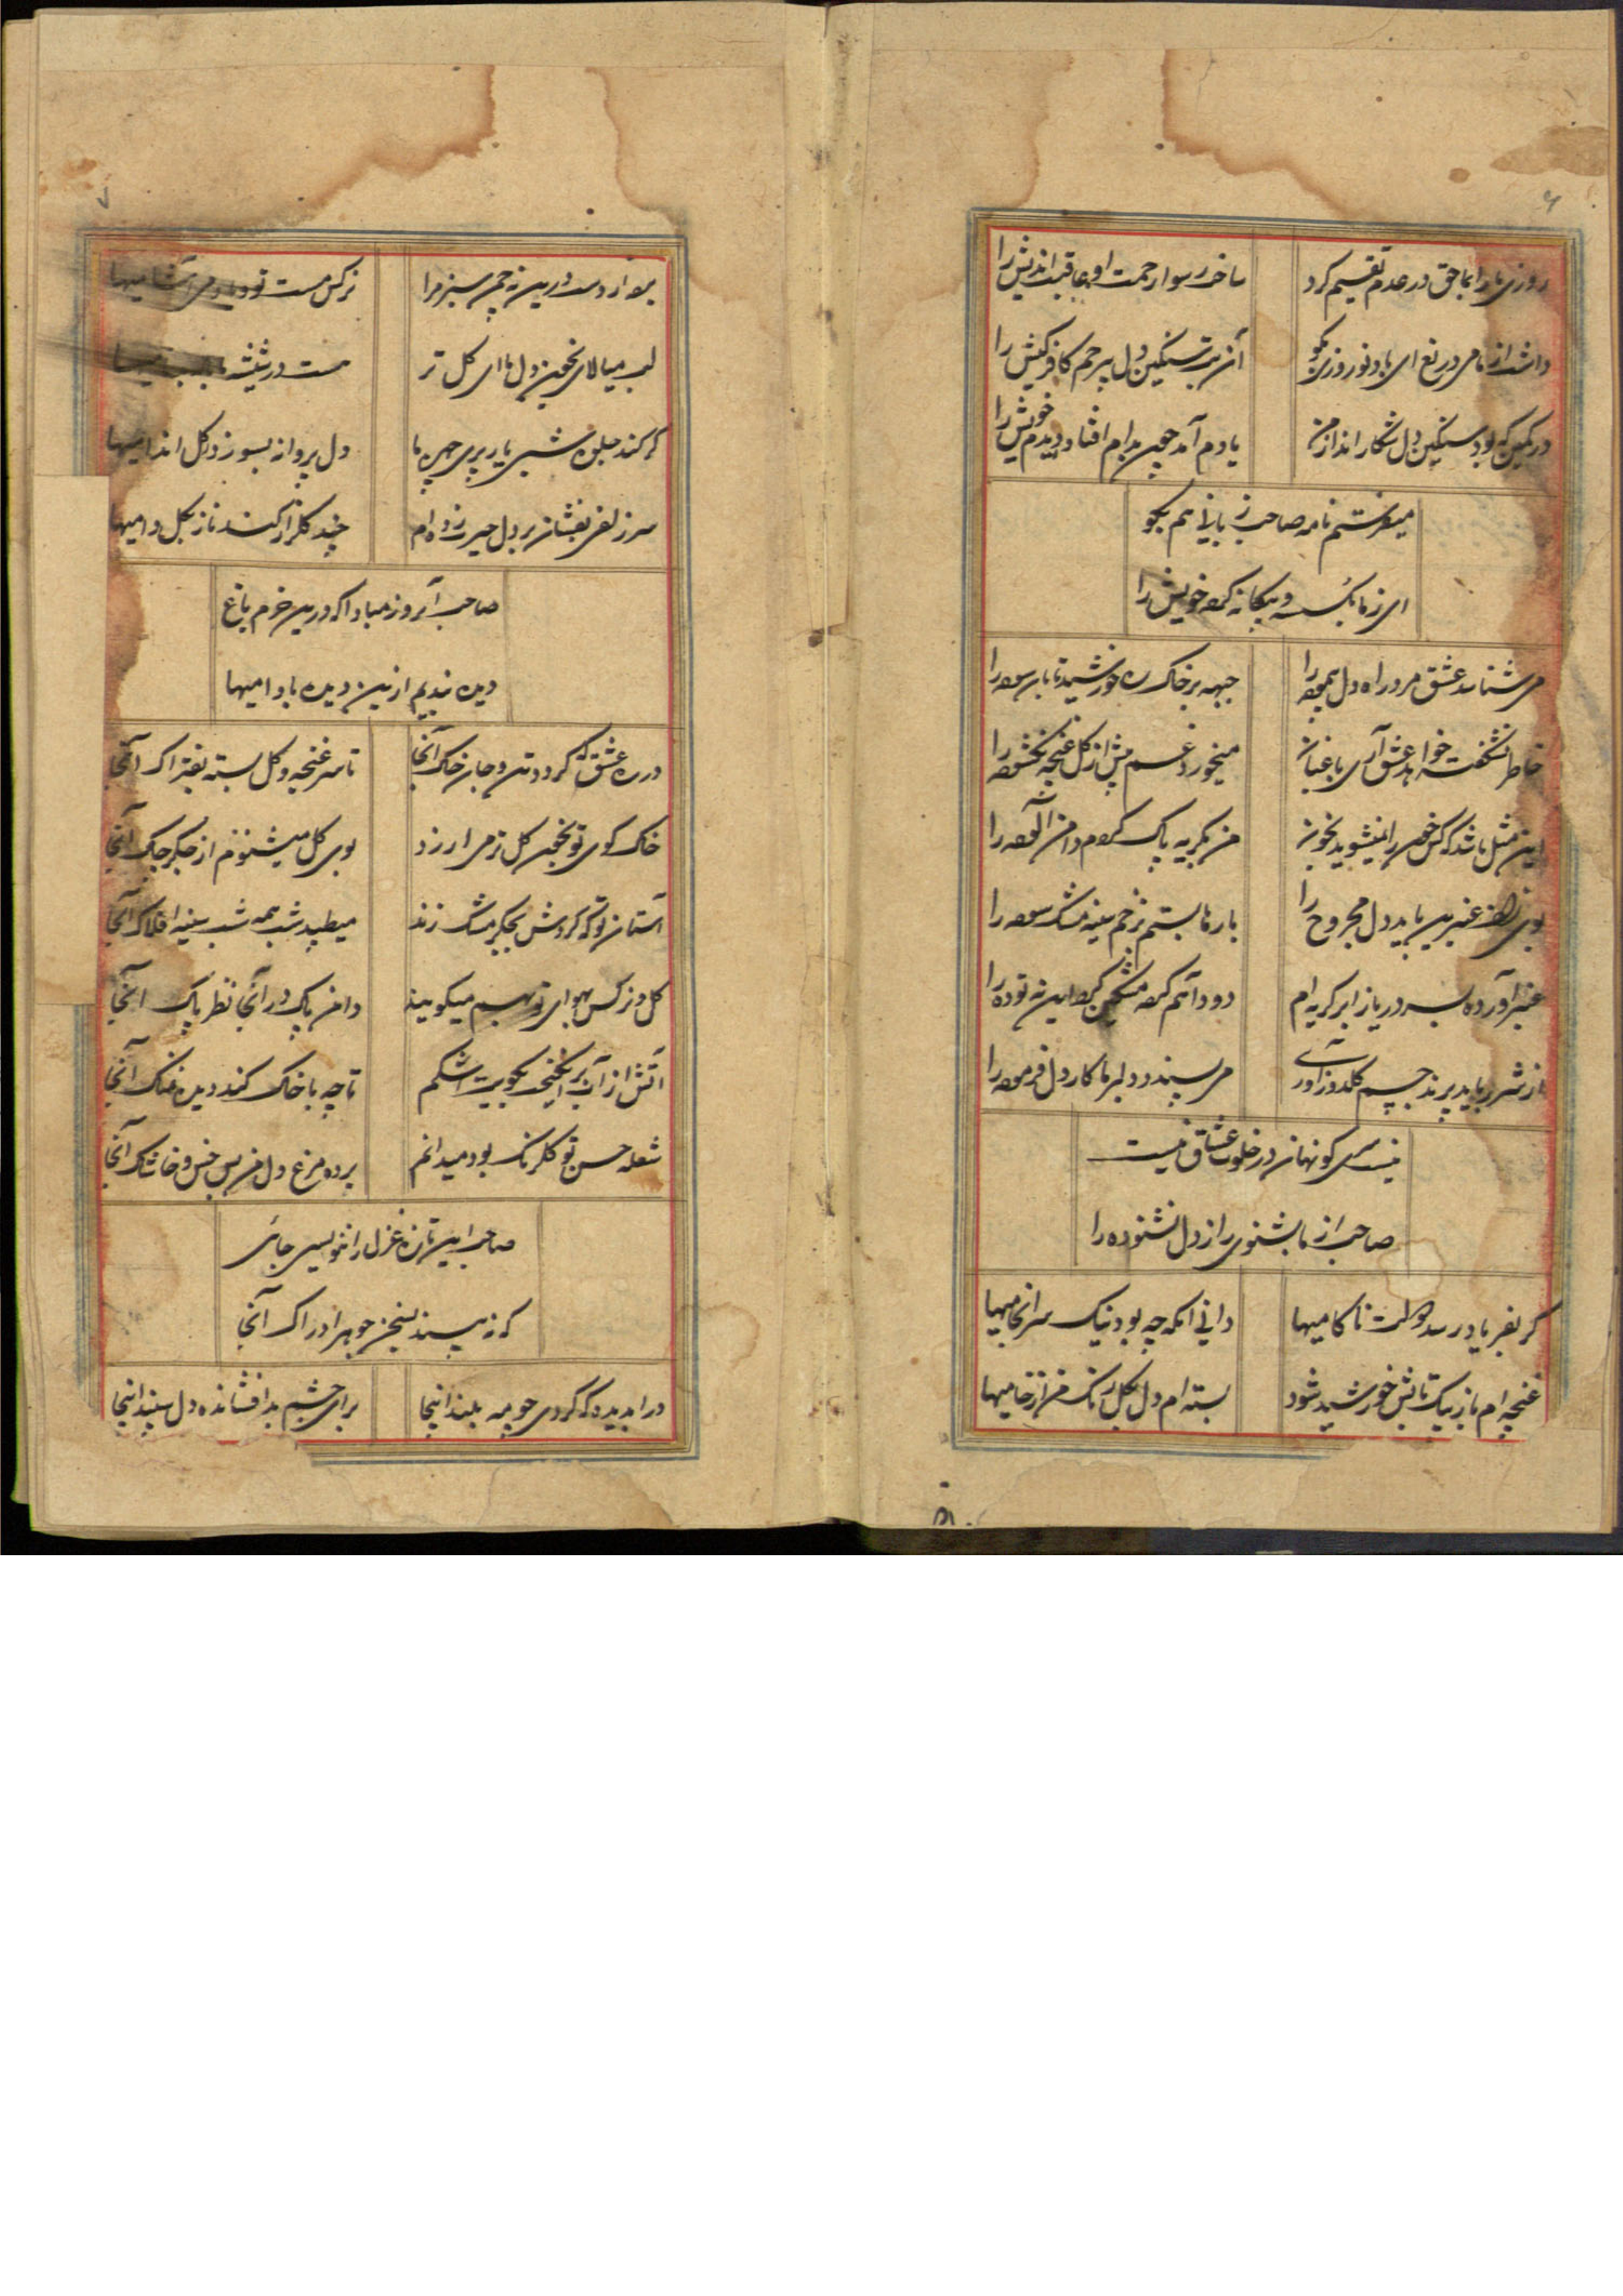 ۶
روزی ما را بما حق در عدم تقسیم کرد
ساخت رسوا رحمت او عاقبت اندیش را
داشت از ما می دریغ ای باد نوروزی بگو
آن بت سنگین دل بیرحم کافر کیش را
در کمین که بود سنگین دل شکار انداز من
یادم آمد چون بدام افتاد و دیدم خویش را
میفرستم نامه صاحب زبانی هم بگو
ای ز ما بگسسته و بیگانه کرده خویش را
می شتابد عشق مرد راه دل پیموده را
جبهه بر خاک ره خورشید تابان سوده را
خاطر نشکفته خواهد عشق آری باغبان
میخورد غم بیش از گل غنچه نگشوده را
این مثل باشد که کس خون را نمیشوید بخون
من بگریه پاک کردم دامن آلوده را
بوی زلف عنبرین باید دل مجروح را
بارها بستم بزخم سینه مشک سوده را
عنبر آورده بسر دریا ز ابر گریه ام
دود آهم کرده مشکین گرد این نه توده را
می سپندد دلبر ما کار دل فرموده را
نیست سری کو نهان در خلوت عشاق نیست
صاحب از ما بشنوی راز دل نشنوده را
گر بفریاد رسد دولت ناکامیها
دانی آنکه چه بود نیک سرانجامیها
غنچه ام باز بیک تابش خورشید شود
بسته ام دل بگل رنگ من از خامیها
۷
لب میالای بخون دل ما ای گل تر
گر کند جلوه شبی یار پری چهره ما
دل پروانه بسوزد ز گل اندامیها
سر زلفی بفشان بر دل حیرت زده ام
چند گلزار کند ناز بگل دامیها
صاحب آنروز مبادا که درین خرم باغ
دیده ندیم ازین دیده بادامیها
در ره عشق که گردد تن و جان خاک آنجا
تا سر غنچه و گل بسته بفتراک آنجا
خاک کوی تو بخون گل تر می ارزد
بوی گل میشنوم از جگر چاک آنجا
آستان تو که گردش بجگر مشک زند
میطپد شب همه شب سینه افلاک آنجا
گل و نرگس بهوای تو بهم میگویند
دامن پاک در آنجا نظر پاک آنجا
آتش از آب برانگیخته بکویت اشکم
تا چه با خاک کند دیده نمناک آنجا
شعله حسن تو گلرنگ بود میدانم
برده مرغ دل من بس خس و خاشاک آنجا
صاحب این تازه غزل را ننویسی جائی
که نه بپسند بسخن جوهر ادراک آنجا
درا بدیده که کردی چو مه بلند اینجا
برای چشم بد افشانده دل سپند اینجا